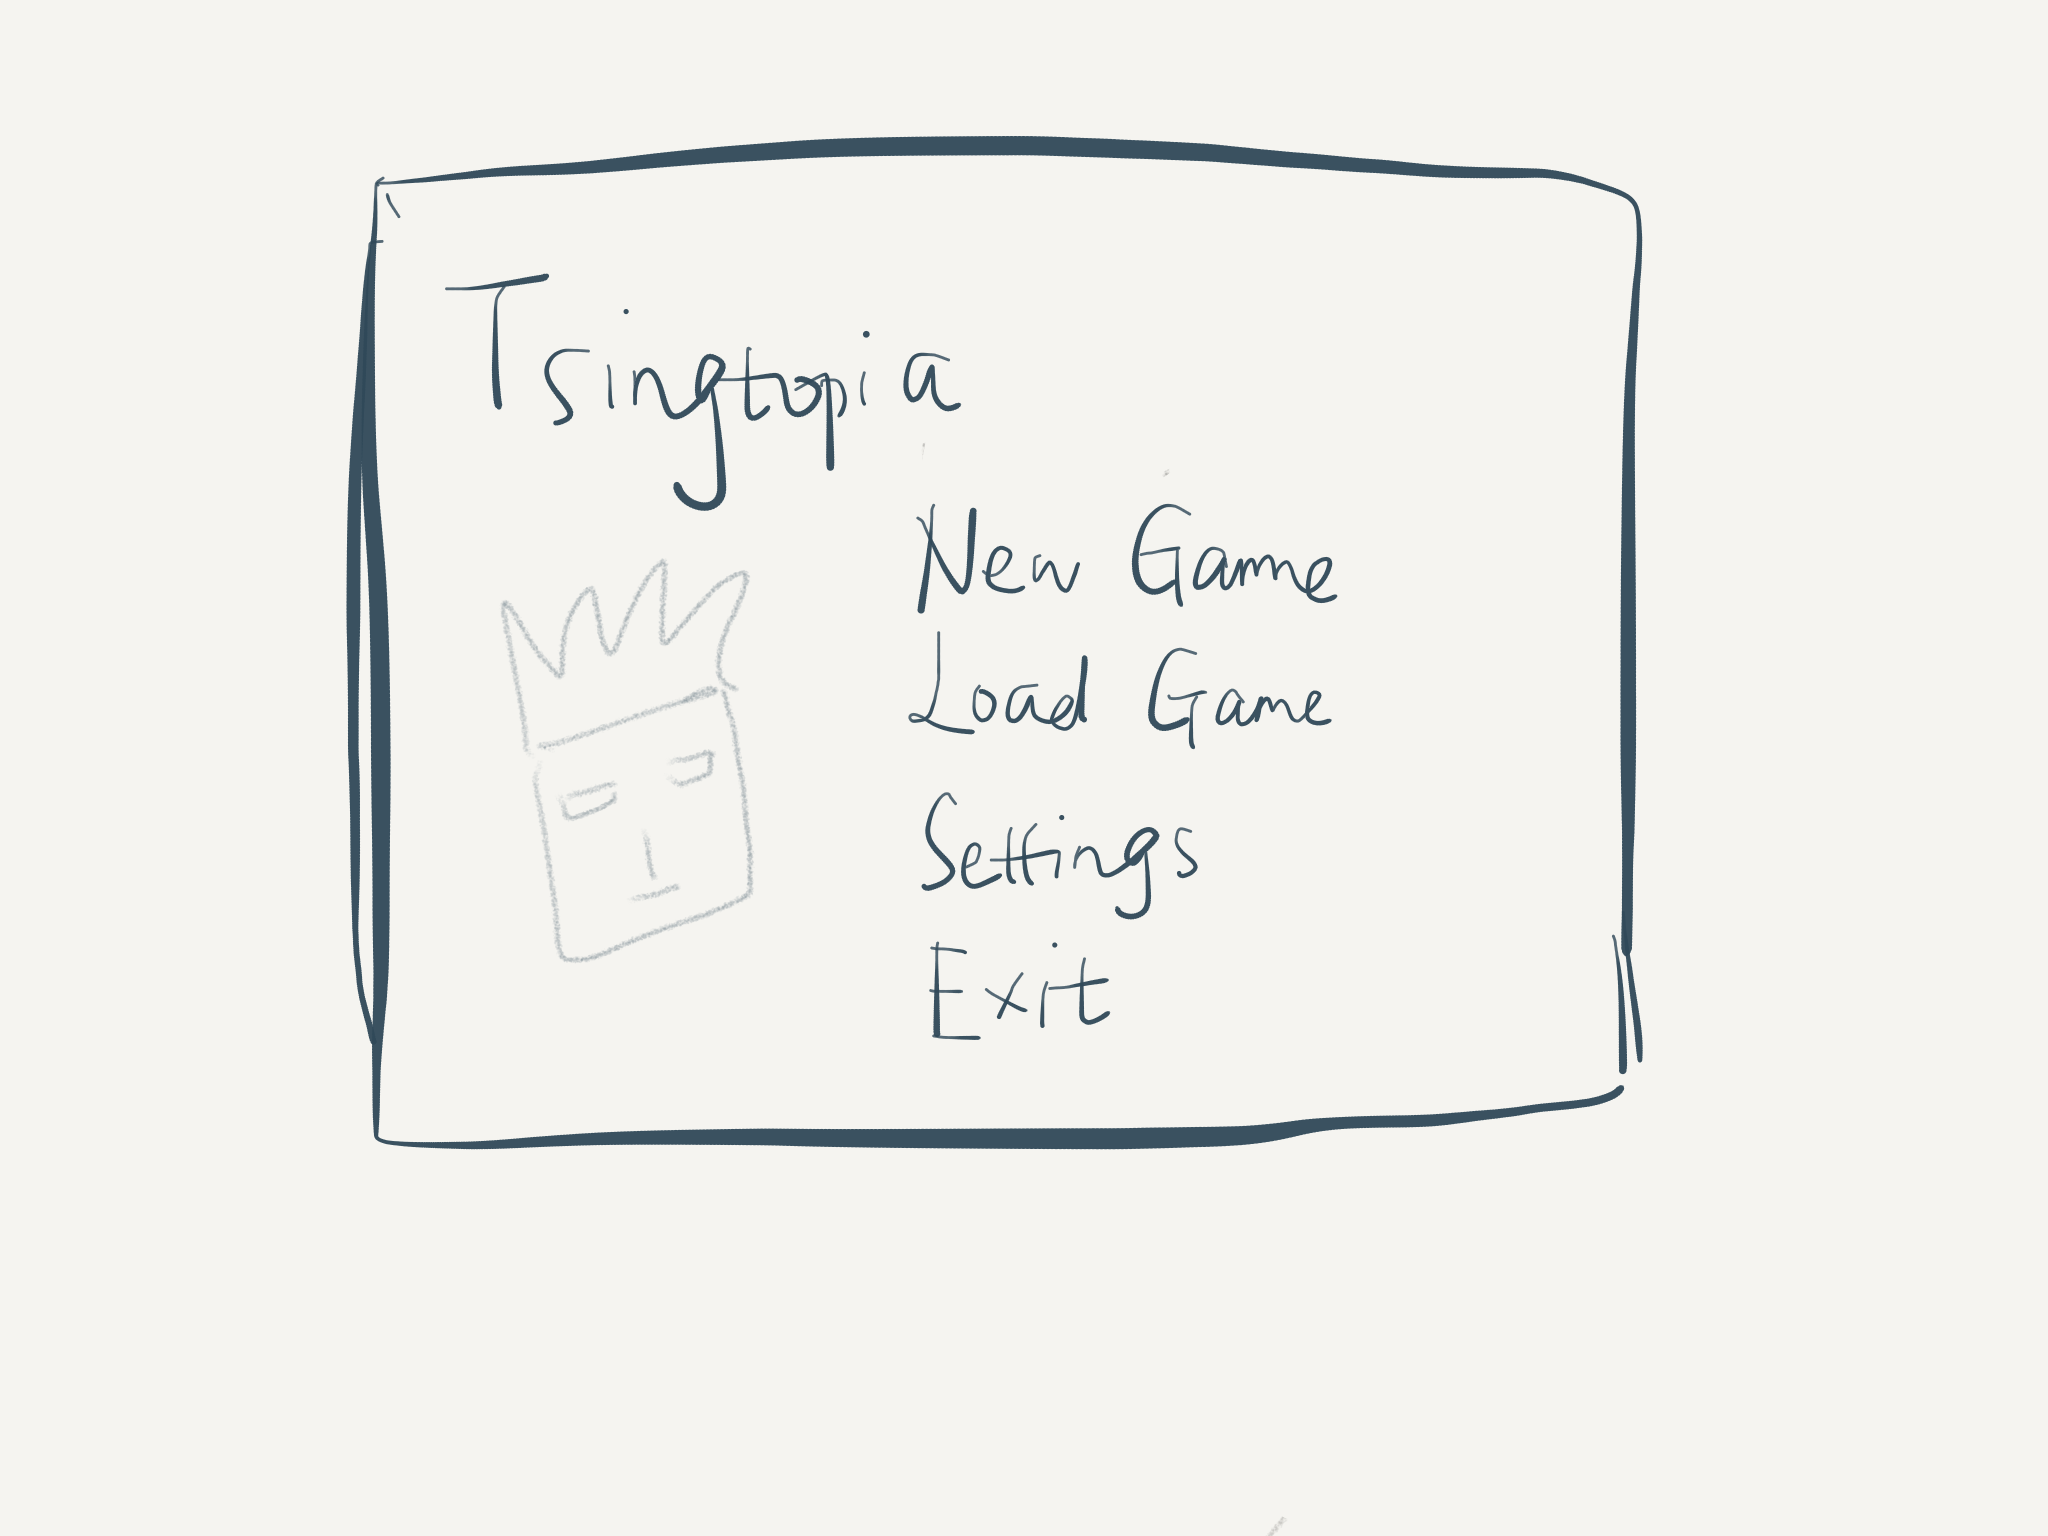 Tsingtopia
New Game
Load Game
Settings
Exit